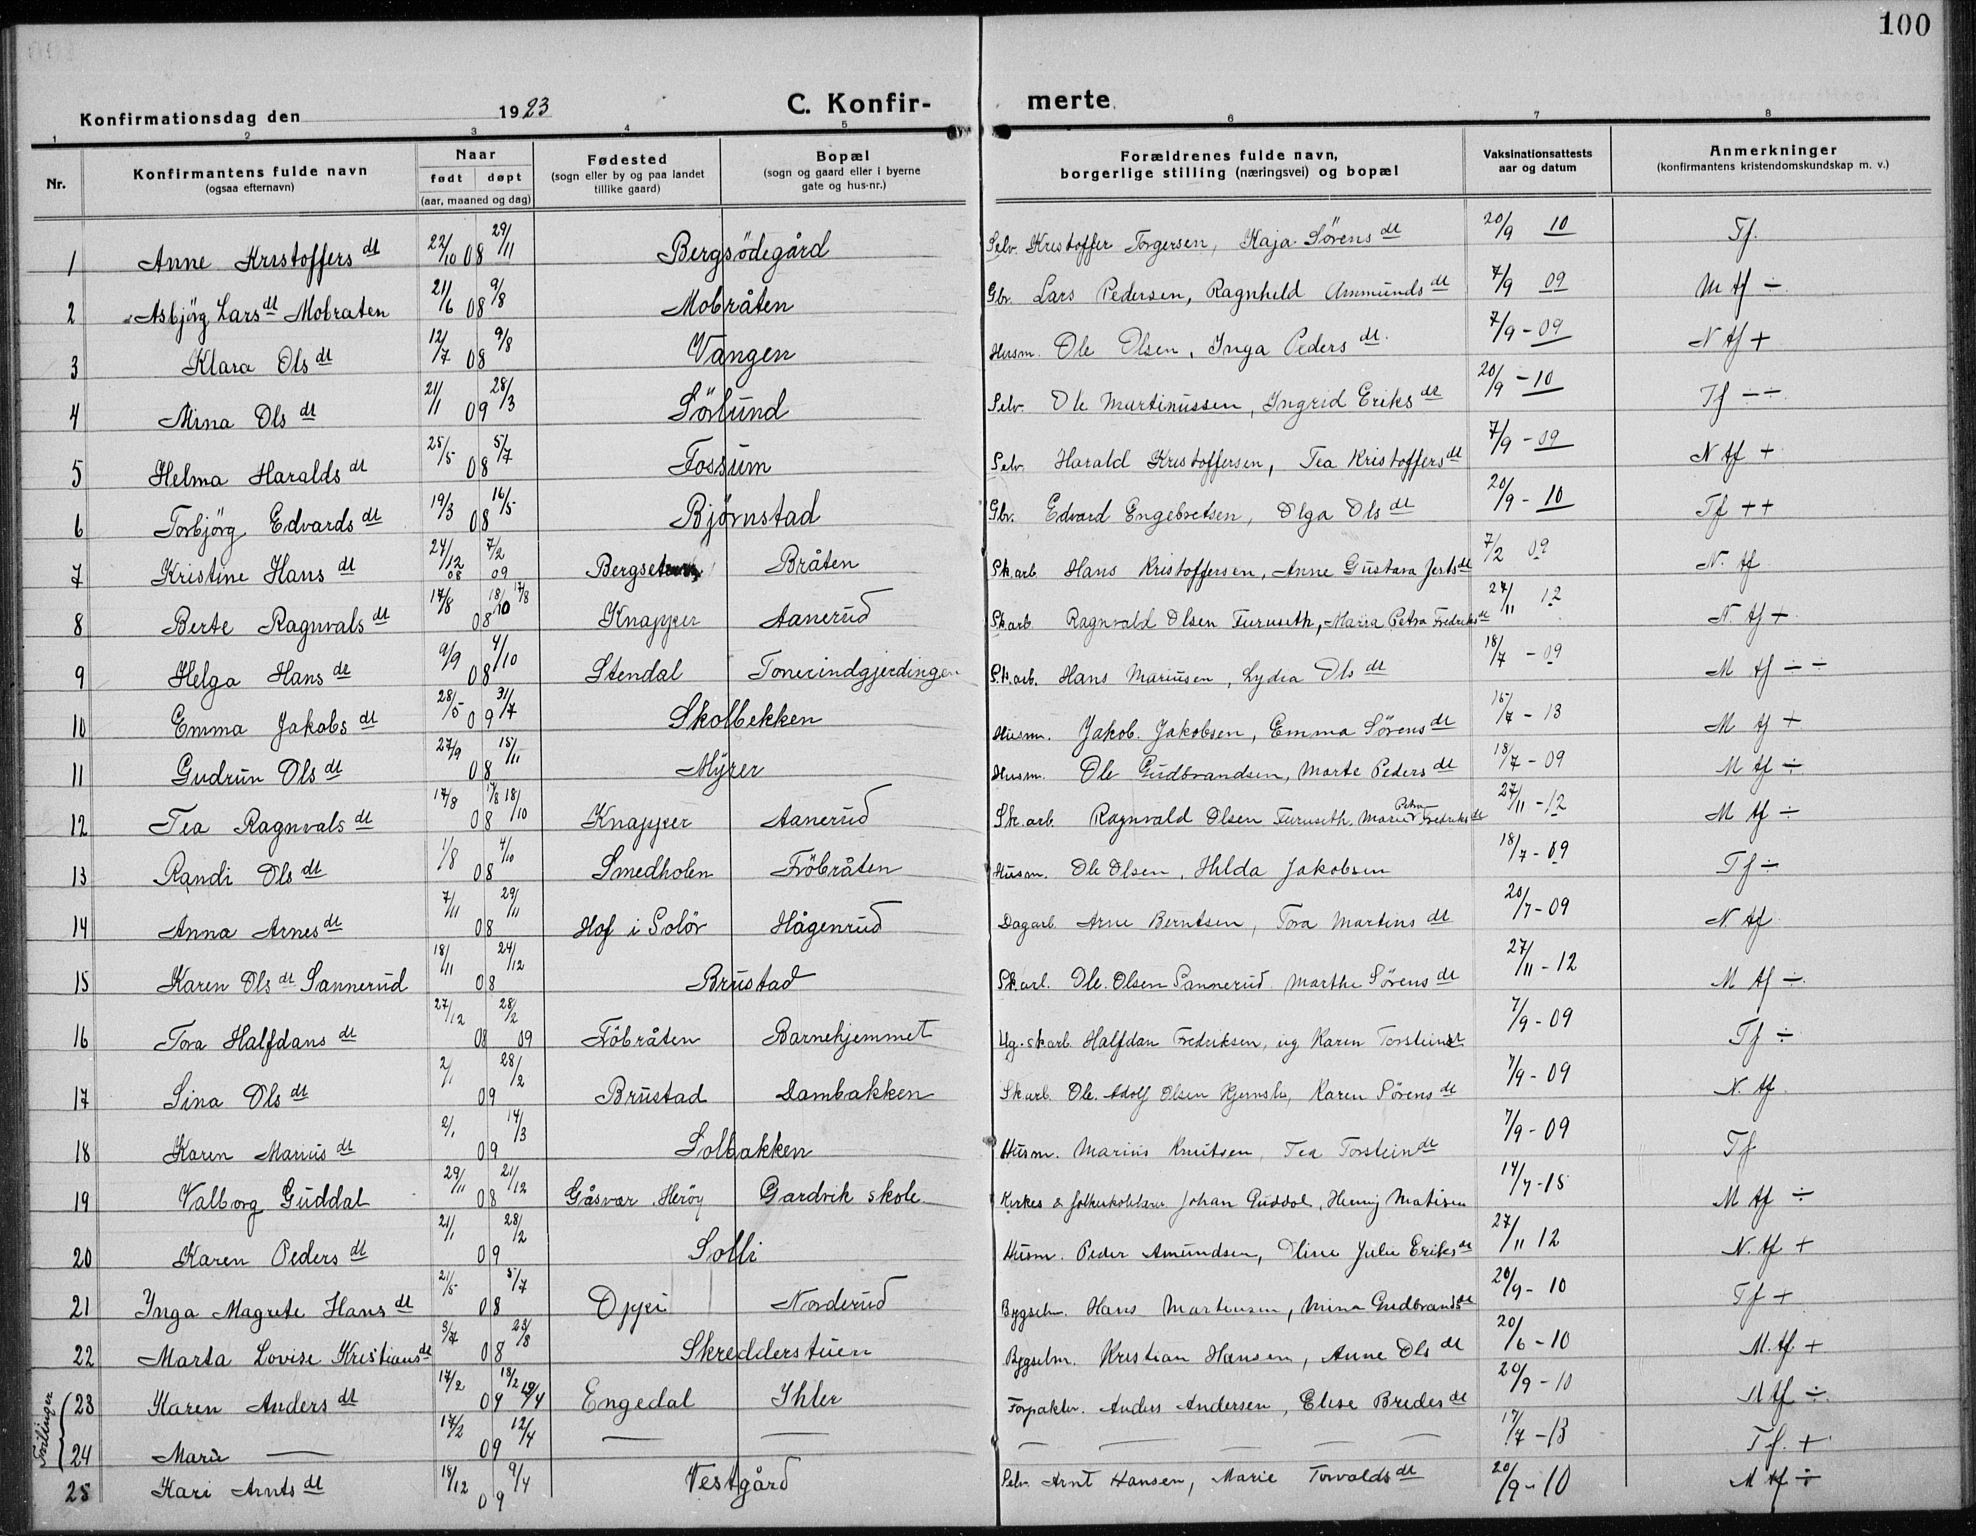 100
Konfirmationsdag den 1923 C. Konfir- merte
1 2 3 4 5 6 7 8
Nr. Konfirmantens fulde navn (ogsaa efternavn) Naar født døpt (aar, maaned og dag) Fødested (sogn eller by og paa landet tillike gaard) Bopæl (sogn og gaard eller i byerne gate og hus-nr.) Forældrenes fulde navn, borgerlige stilling (næringsvei) og bopæl Vaksinationsattests aar og datum Anmerkninger (konfirmantens kristendomskundskap m. v.)
1 Anne Kristoffers dt 22/10 08 29/11 Bergsödegård Selv. Kristoffer Torgersen, Kaja Sørens dt 20/9 10 Tf.
2 Asbjörg Lars dt Mobraten 21/6 08 9/8 Mobråten Gbr. Lars Pedersen, Ragnhild Ammunds dt 7/9 09 M tf ÷
3 Klara Ols dt 12/7 08 9/8 Vangen Husm. Ole Olsen, Inga Peders dt. 7/9 - 09 N tf +
4 Mina Ols dt 21/1 09 28/3 Sörlund Selv. Ole Martinussen, Ingrid Eriks dt 20/9 - 10 Tf ÷ ÷
5 Helma Haralds dt 25/5 08 5/7 Fossum Selv. Harald Kristoffersen, Tea Kristoffers dt 7/9 - 09 N tf +
6 Torbjörg Edvards dt 19/3 08 16/5 Bjørnstad Gbr. Edvard Engebretsen, Olga Ols dt 20/9 - 10 Tf ++
7 Kristine Hans dt 24/12 08 7/2 09 Bråten Skarb Hans Kristoffersen, Anne Gustava dt 7/2 09 N. tf
8 Berte Ragnvals dt 17/8 08 18/10 17/8 Knapper Aanerud Skarb Ragnvald Olsen Furuseth, Maria Petra Fredriks dt 27/11 12 N. tf +
9 Helga Hans dt 9/9 08 4/10 Stendal Tonerindgjerdingen Sk.arb. Hans Mariusen, Lydia Ols dt 18/7 - 09 M tf ÷ ÷
10 Emma Jakobs dt 28/5 09 31/7 Skolbekken Husm. Jakob Jakobsen, Emma Sørens dt 15/7 - 13 M tf +
11 Gudrun Ols dt 27/9 08 15/11 Myrer Husm. Ole Gudbrandsen, Marte Peders dt 18/7 - 09 M tf ÷
12 Tea Ragnvals dt 17/8 08 17/8 18/10 Knapper Aanerud Sk.arb. Ragnvald Olsen Furuseth. Marie Petra Fredriks dt 27/11 - 12 M tf ÷
13 Randi Ols dt 1/8 08 4/10 Smedholen Fröbråten Husm. Ole Olsen, Hilda Jakobsen 18/7 - 09 Tf ÷
14 Anna Arnes dt 7/11 08 29/11 Hof i Solör Hågenrud Dagarb. Arne Berntsen, Tora Martins dt 20/7 - 09 N tf
15 Karen Ols dt Sannerud 18/11 08 24/12 Brustad Skarb. Ole. Olsen Sannerud. Marthe Sørens dt 27/11 - 12 M tf ÷
16 Tora Halfdans dt 27/12 08 28/2 09 Föbråten Barnehjemmet Ug. skarb. Halfdan Fredriksen, ug Karen Torsteinsdt 7/9 - 09 Tf ÷
17 Sina Ols dt 2/1 09 28/2 Brustad Dambakken Skarb. Ole. Adolf Olsen, Karen Sørens dt 7/9 - 09 N. tf.
18 Karen Marius dt 2/1 09 14/3 Solbakken Husm. Marius Knutsen, Tea Torstein dt 7/9 - 09 Tf
19 Valborg Guddal 29/11 08 21/12 Gåsvær Herøy Gardvik skole Kirkes & folkeskolelærer Johan Guddal, Henny Matisen 14/7 - 15 M tf ÷
20 Karen Peders dt 21/1 09 28/2 Solli Husm. Peder Amundsen, Oline Julie Eriks dt 27/11 12 N. tf +
21 Inga Magrete Hans dt 21/5 08 5/7 Oppi Norderud Bygselm. Hans Martinsen, Mina Gudbrands dt 20/9 - 10 Tf +
22 Marta Lovise Kristians dt 3/7 08 23/8 Skredderstuen Bygselm. Kristian Hansen, Anne Ols dt 20/6 - 10 M. tf +
Tvillinger
23 Karen Anders dt 17/2 09 18/2 12/4 Engedal Ihler Forpakter. Anders Andersen, Elise Bredes dt 20/9 - 10 N tf ÷
24 Marie — 17/2 09 12/4 — — — — — — — 17/7 - 13 Tf. +
25 Kari Arnts dt 18/12 09 9/4 Vestgård Selv. Arnt Hansen, Marie Torvalds dt 20/9 - 10 M tf ÷